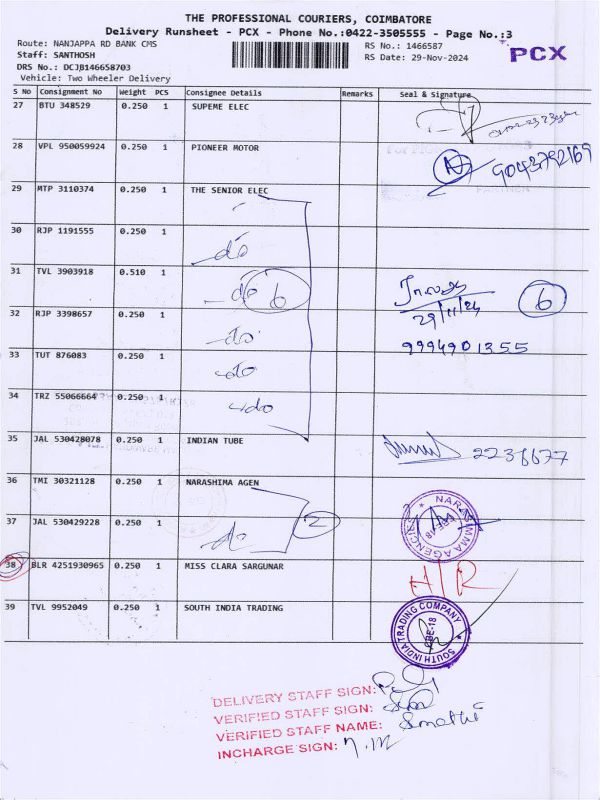 THE PROFESSIONAL COURIERS, COIMBATORE
Delivery Runsheet - PCX - Phone No.:0422-3505555 - Page No.:3
Route: NANJAPPA RD BANK CMS
RS No.: 1466587
PCX
Staff: SANTHOSH
RS Date: 29-Nov-2024
DRS No.: DCJB146658703
Vehicle: Two Wheeler Delivery
S No Consignment No Weight PCS Consignee Details Remarks Seal & Signature
27 BTU 348529 0.250 1 SUPEME ELEC
28 VPL 950059924 0.250 1 PIONEER MOTOR 9043792169
PARTNER
29 MTP 3110374 0.250 1 THE SENIOR ELEC
30 RJP 1191555 0.250 1 do
31 TVL 3903918 0.510 1 do 6 6
29/11/24
32 RJP 3398657 0.250 1 do
9994901355
33 TUT 876083 0.250 1 do
34 TRZ 55066664 0.250 1 do
35 JAL 530428078 0.250 1 INDIAN TUBE 2236677
36 TMI 30321128 0.250 1 NARASHIMA AGEN
37 JAL 530429228 0.250 1 do 2
38 BLR 4251930965 0.250 1 MISS CLARA SARGUNAR H/R
39 TVL 9952049 0.250 1 SOUTH INDIA TRADING
SOUTH INDIA TRADING COMPANY
CBE-18
DELIVERY STAFF SIGN:
VERIFIED STAFF SIGN:
VERIFIED STAFF NAME: Smathi
INCHARGE SIGN: